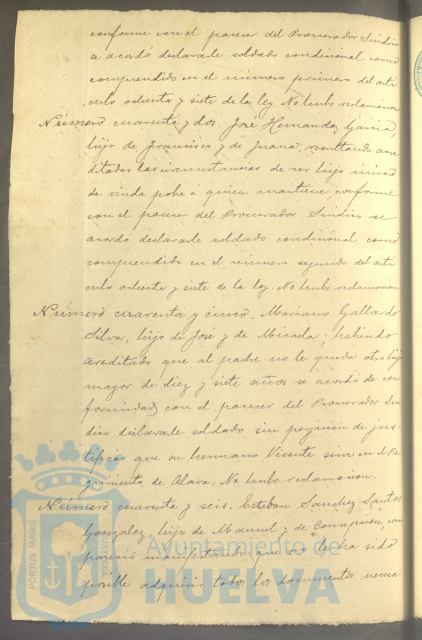 conforme con el parecer del Procurador Síndico
se acordó declararle soldado condicional como
comprendido en el número primero del arti
culo ochenta y siete de la ley. No hubo reclamacion
Número cuarenta y dos. José Hernandez Garcia,
hijo de Francisco y de Juana, resultando acre
ditadas las circunstancias de ser hijo único
de viuda pobre á quien mantiene, conforme
con el parecer del Procurador Síndico se
acordó declararle soldado condicional como
comprendido en el número segundo del arti
culo ochenta y siete de la ley. No hubo reclamacion
Número cuarenta y cinco. Mariano Gallardo
Silva, hijo de José y de Micaela, habiendo
acreditado que al padre no le queda otro hijo
mayor de diez y siete años se acordó de con
formidad con el parecer del Procurador Sín
dico declararle soldado sin perjuicio de jus
tificar que su hermano Vicente sirve en el Re
gimiento de Alava. No hubo reclamacion.
Número cuarenta y seis. Esteban Sanchez Santos
Gonzalez, hijo de Manuel y de
manifestando que no le ha sido
posible adquirir todos los documentos necesa
PORTUS MARIS
Ayuntamiento de
HUELVA